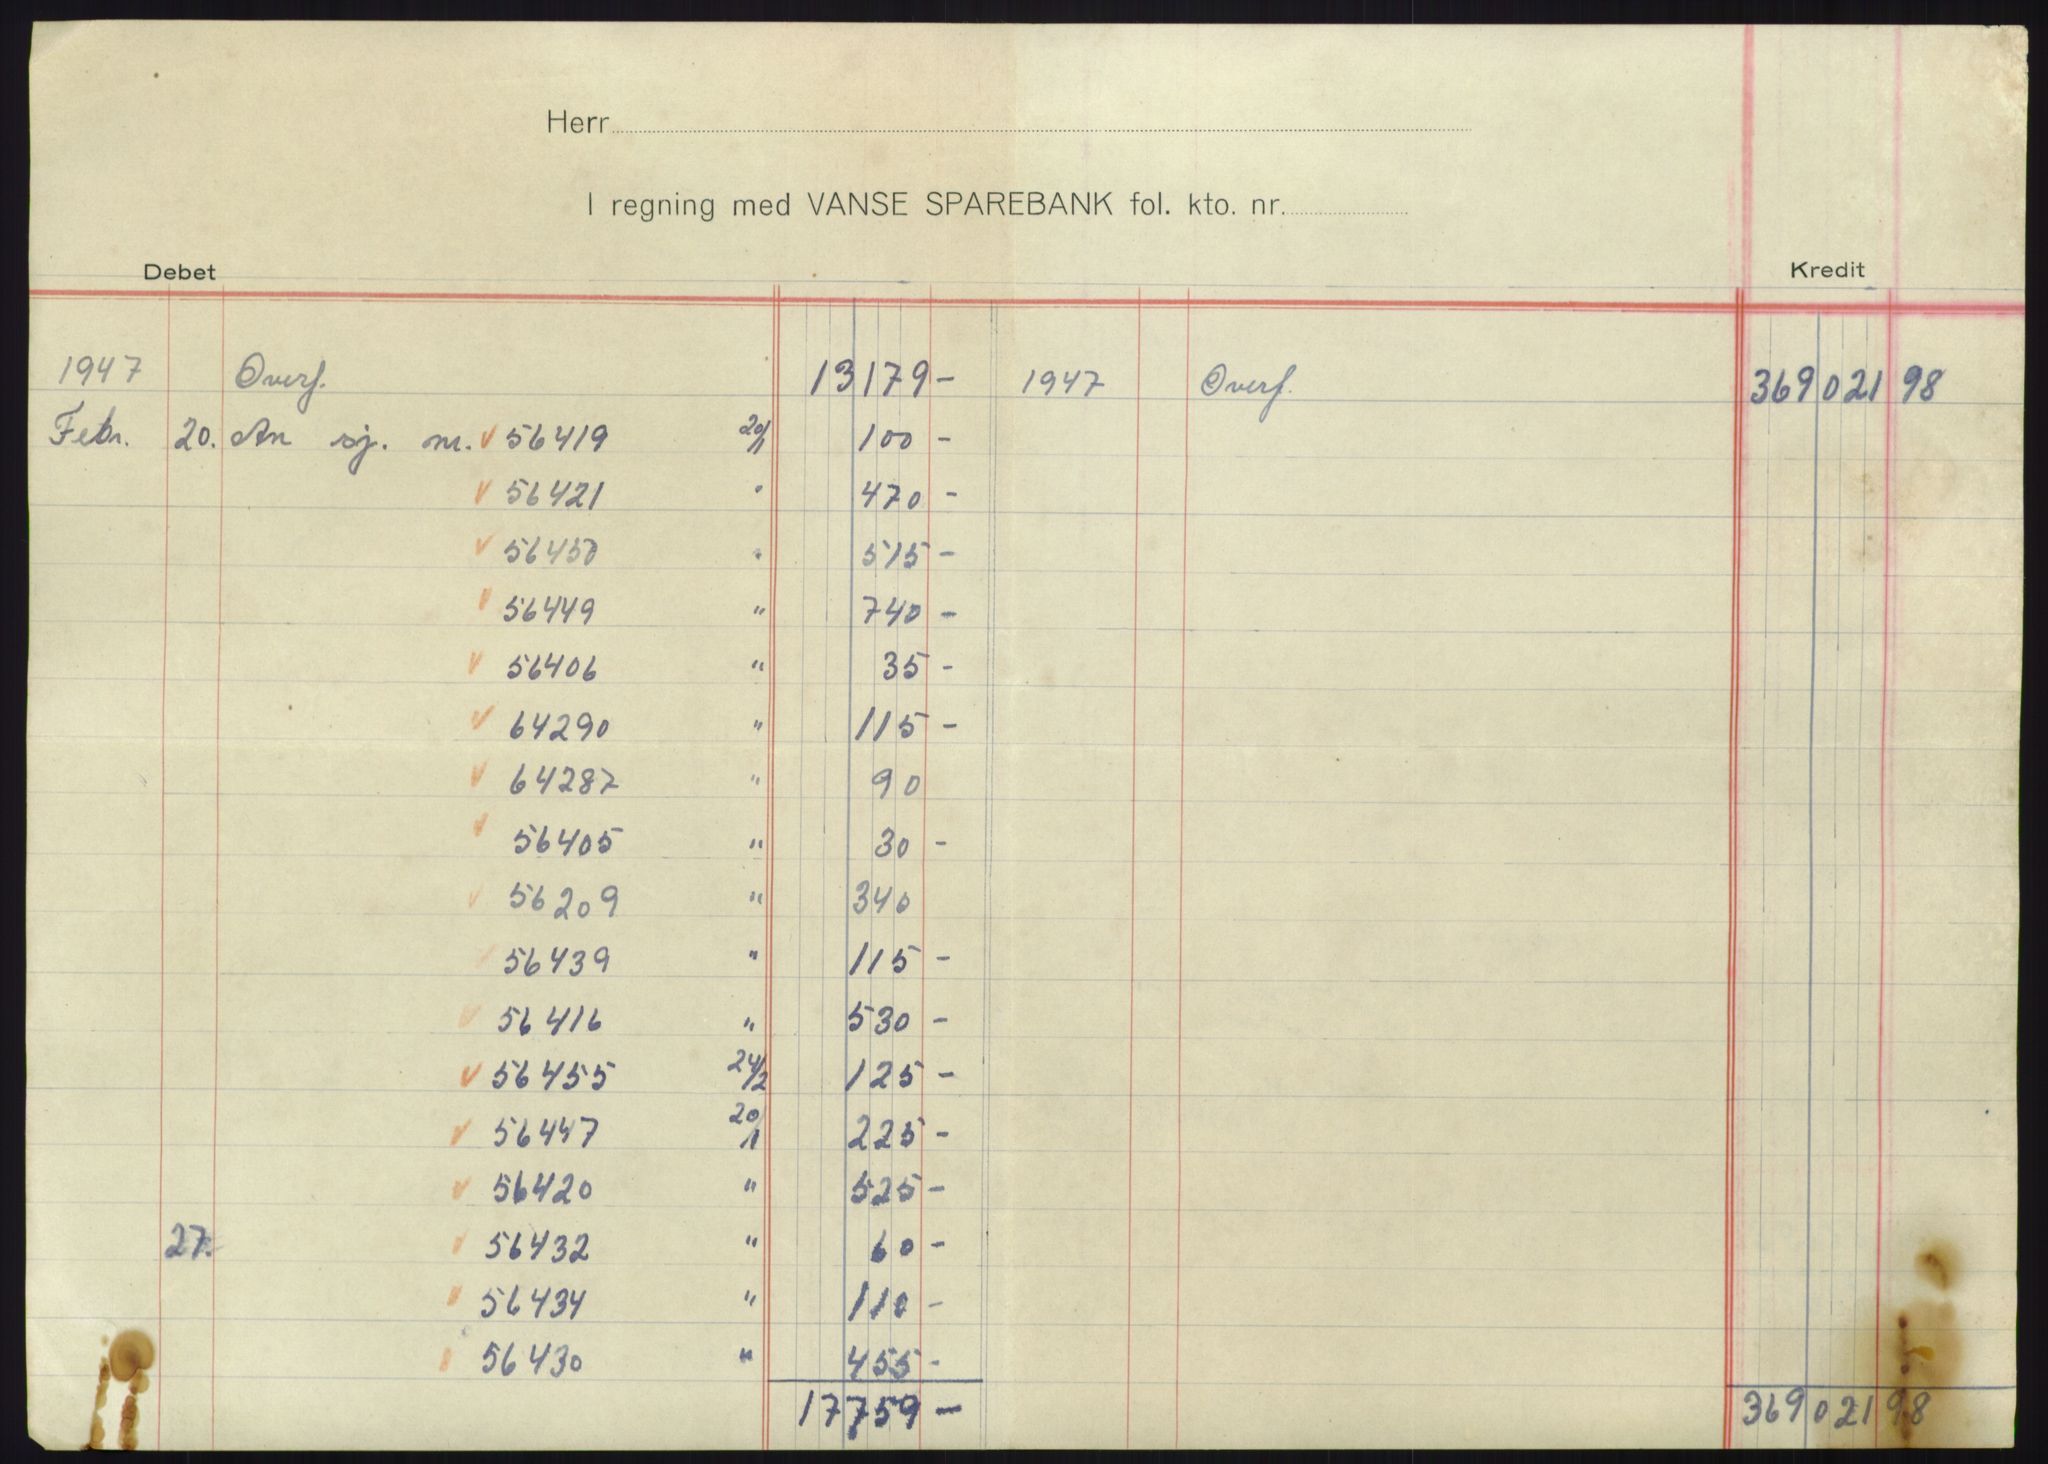 Herr
I regning med VANSE SPAREBANK fol. kto. nr.
Debet Kredit
1947 Overf. 13179 - 1947 Overf. 369021 98
Febr. 20. An sj. nr. v 56419 20/1 100 -
v 56421 " 470 -
v 56450 " 515 -
v 56449 " 740 -
v 56406 " 35 -
v 64290 " 115 -
v 64287 " 90
v 56405 " 30 -
v 56209 " 340
v 56439 " 115 -
v 56416 " 530 -
v 56455 24/2 125 -
v 56447 20/1 225 -
v 56420 " 525 -
27. v 56432 " 60 -
v 56434 " 110 -
v 56430 " 455 -
17759 - 369021 98